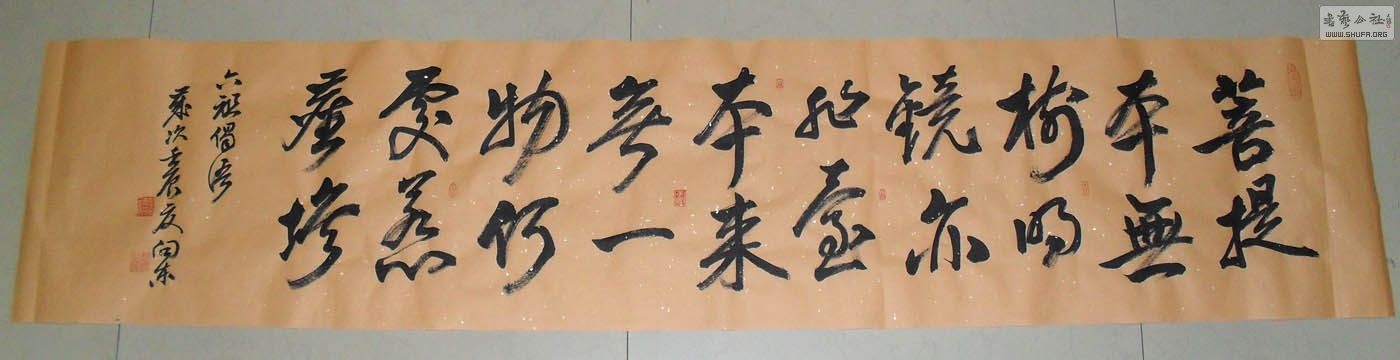 菩提
本無
樹明
鏡亦
非臺
本来
無一
物何
處惹
塵埃
六祖偈語
歲次
書藝公社
WWW.SHUFA.ORG